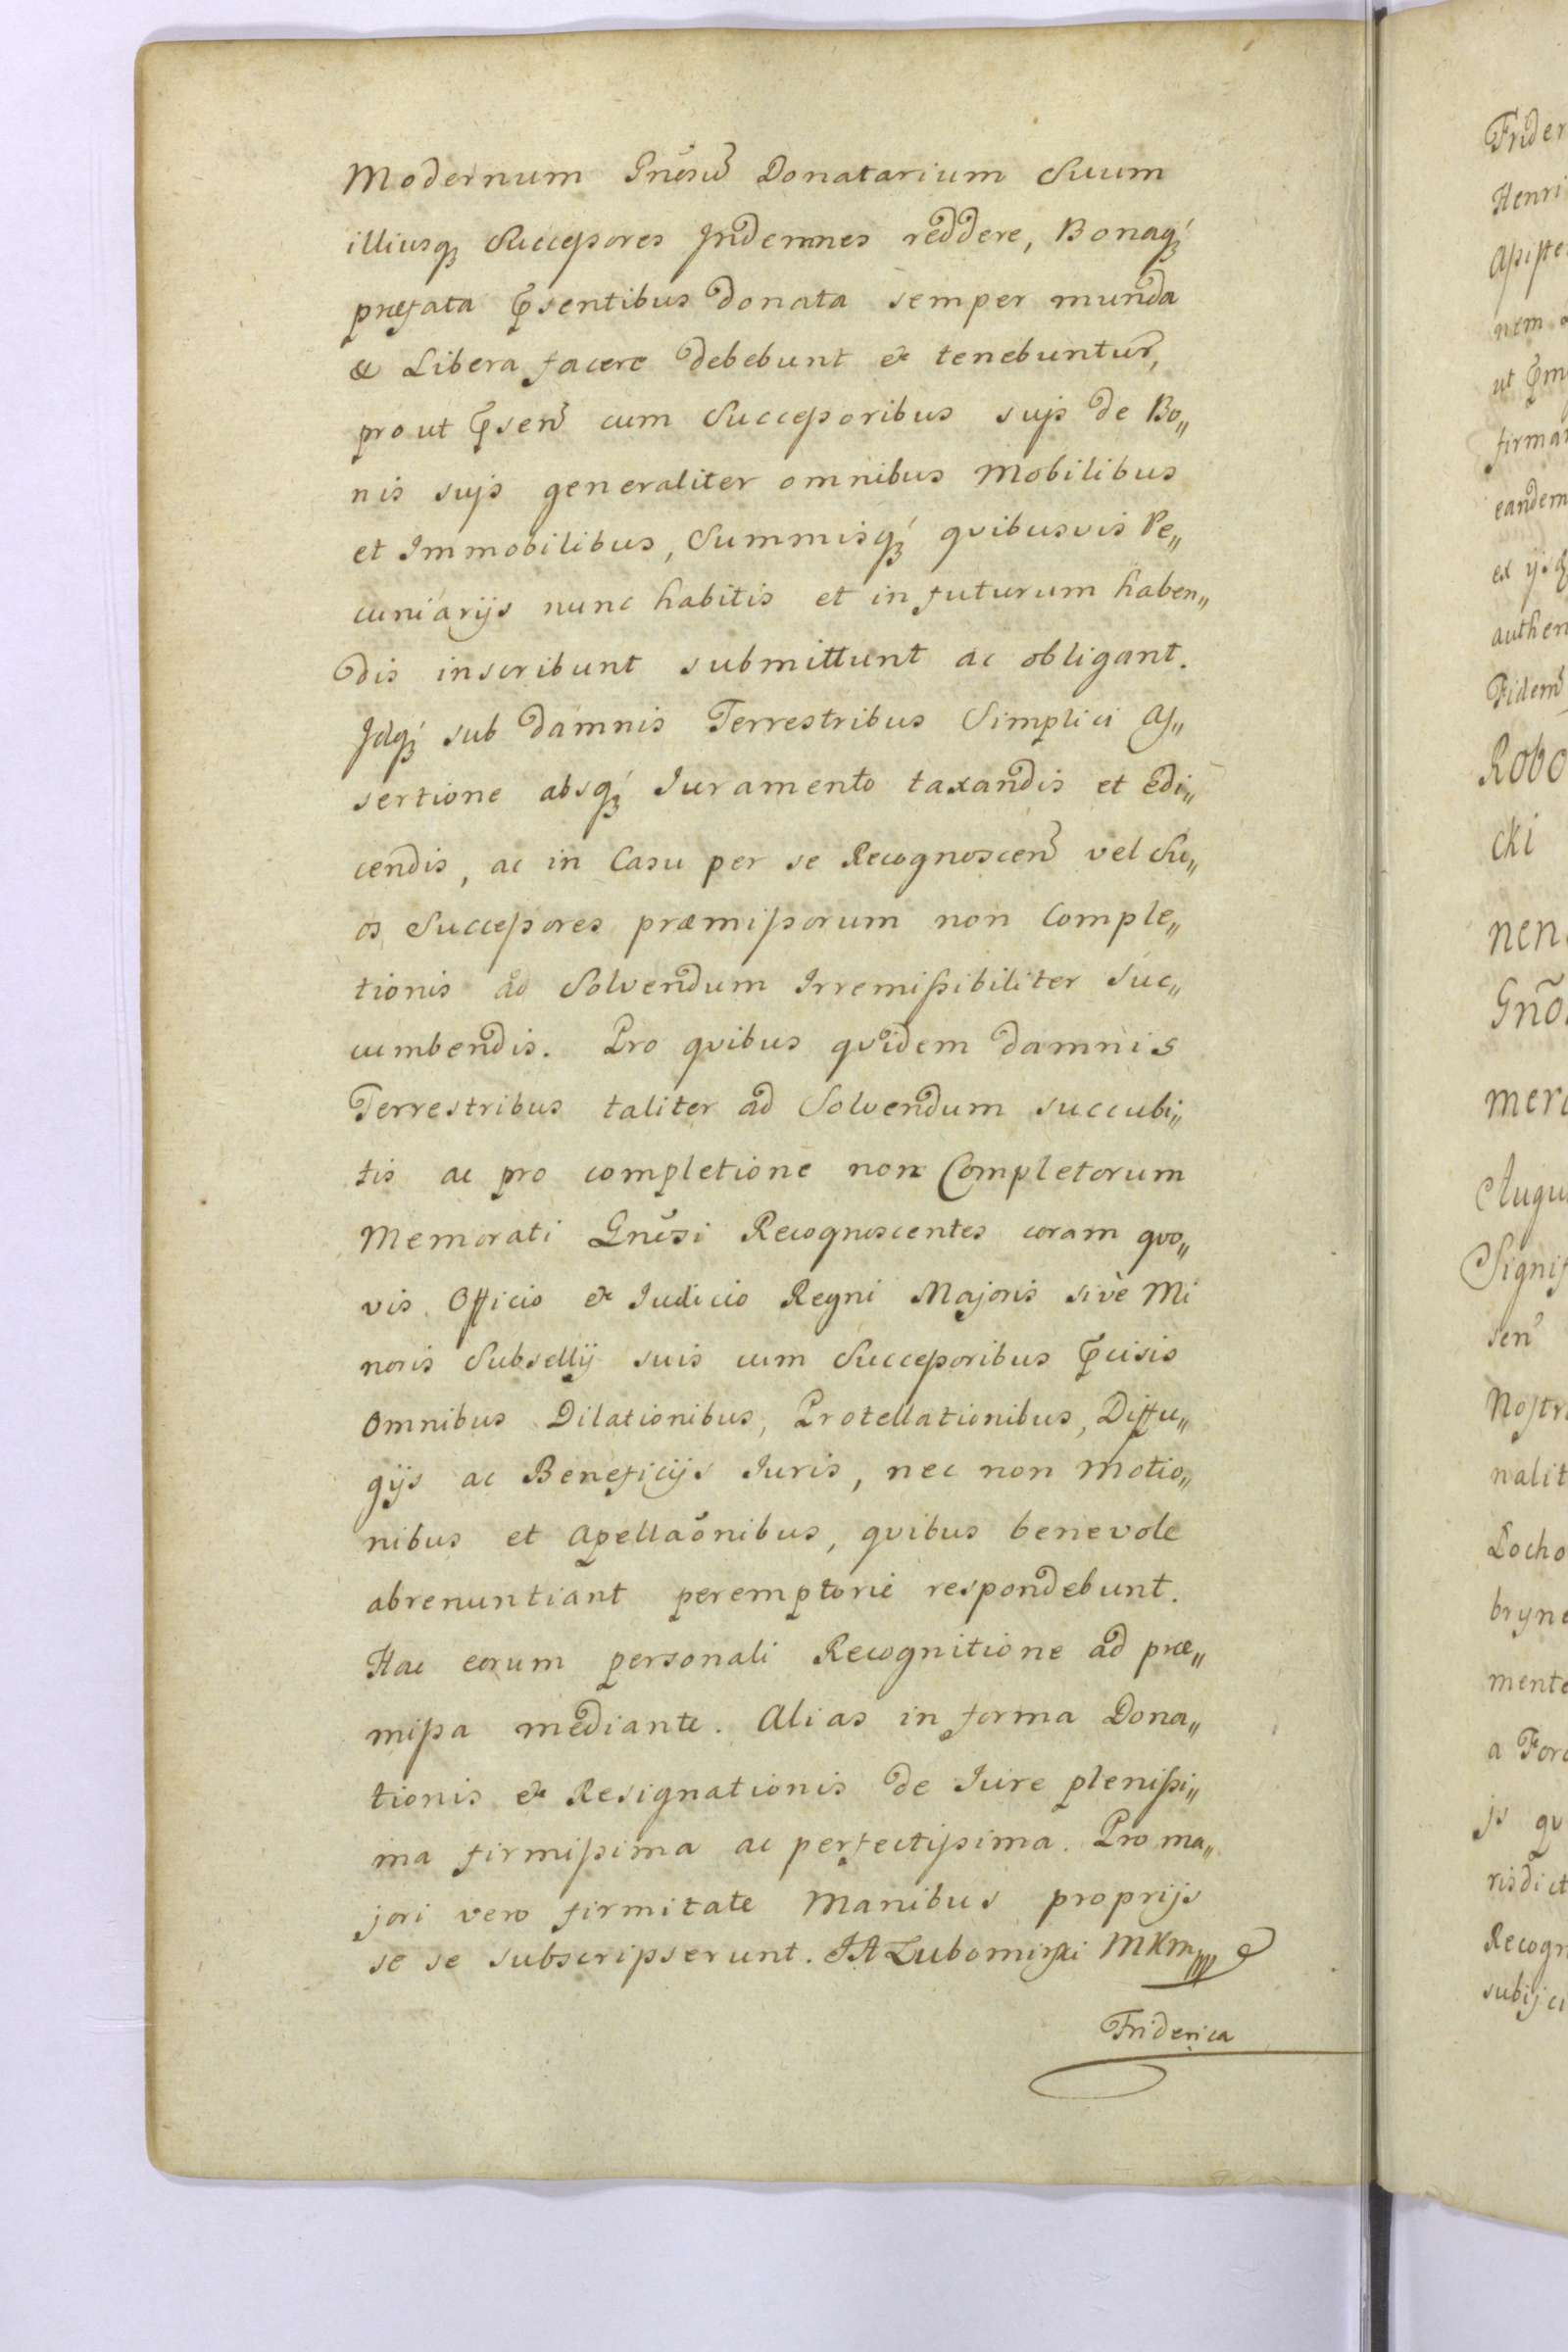 Modernum Gnõsũ Donatarium Suum
illiusq́ Successores Indemnes reddere, Bonaq́
præfata Psentibus donata semper munda
& Libera facere debebunt & tenebuntur,
prout Psen̄ cum Successoribus suis de Bo„
nis suis generaliter omnibus Mobilibus
et Immobilibus, Summisq́ quibusvis Pe„
cuniarijs nunc habitis et in futurum haben„
dis inscribunt submittunt ac obligant.
Idq́ sub damnis Terrestribus Simplici As„
sertione absq́ Iuramento taxandis et edi„
cendis, ac in Casu per se Recognoscen̄ vel Su„
os Successores præmissorum non Comple„
tionis ad Solvendum Irremissibiliter Suc„
cumbendis. Pro quibus quidem damnis
Terrestribus taliter ad Solvendum succubi„
tis ac pro completione non Completorum
Memorati Gnõsi Recognoscentes coram quo„
vis Officio & Iudicio Regni Majoris sivè Mi
noris Subsellij suis cum Successoribus Pcisis
omnibus Dilationibus, Protellationibus, Diffu„
gijs ac Beneficijs Iuris, nec non Motio„
nibus et Apellaõnibus, quibus benevole
abrenuntiant peremptorie respondebunt.
Hac eorum personali Recognitione ad præ„
missa mediante. Alias in forma Dona„
tionis & Resignationis de Iure plenissi„
ma firmissima ac perfectissima. Pro ma„
jori vero firmitate Manibus proprijs
se se subscripserunt. JA Lubomirski MKm
Friderica
Frider
Henri
Assiste
nem
ut Pm
firma
eandem
ex ijsq
authen
Fidem
Robo
cki
nen
Gnõ
mer
Augu
Signif
sen̄
Nostr
nalit
Locho
bryne
mente
a Foro
js qu
risdict
Recogn
subijci